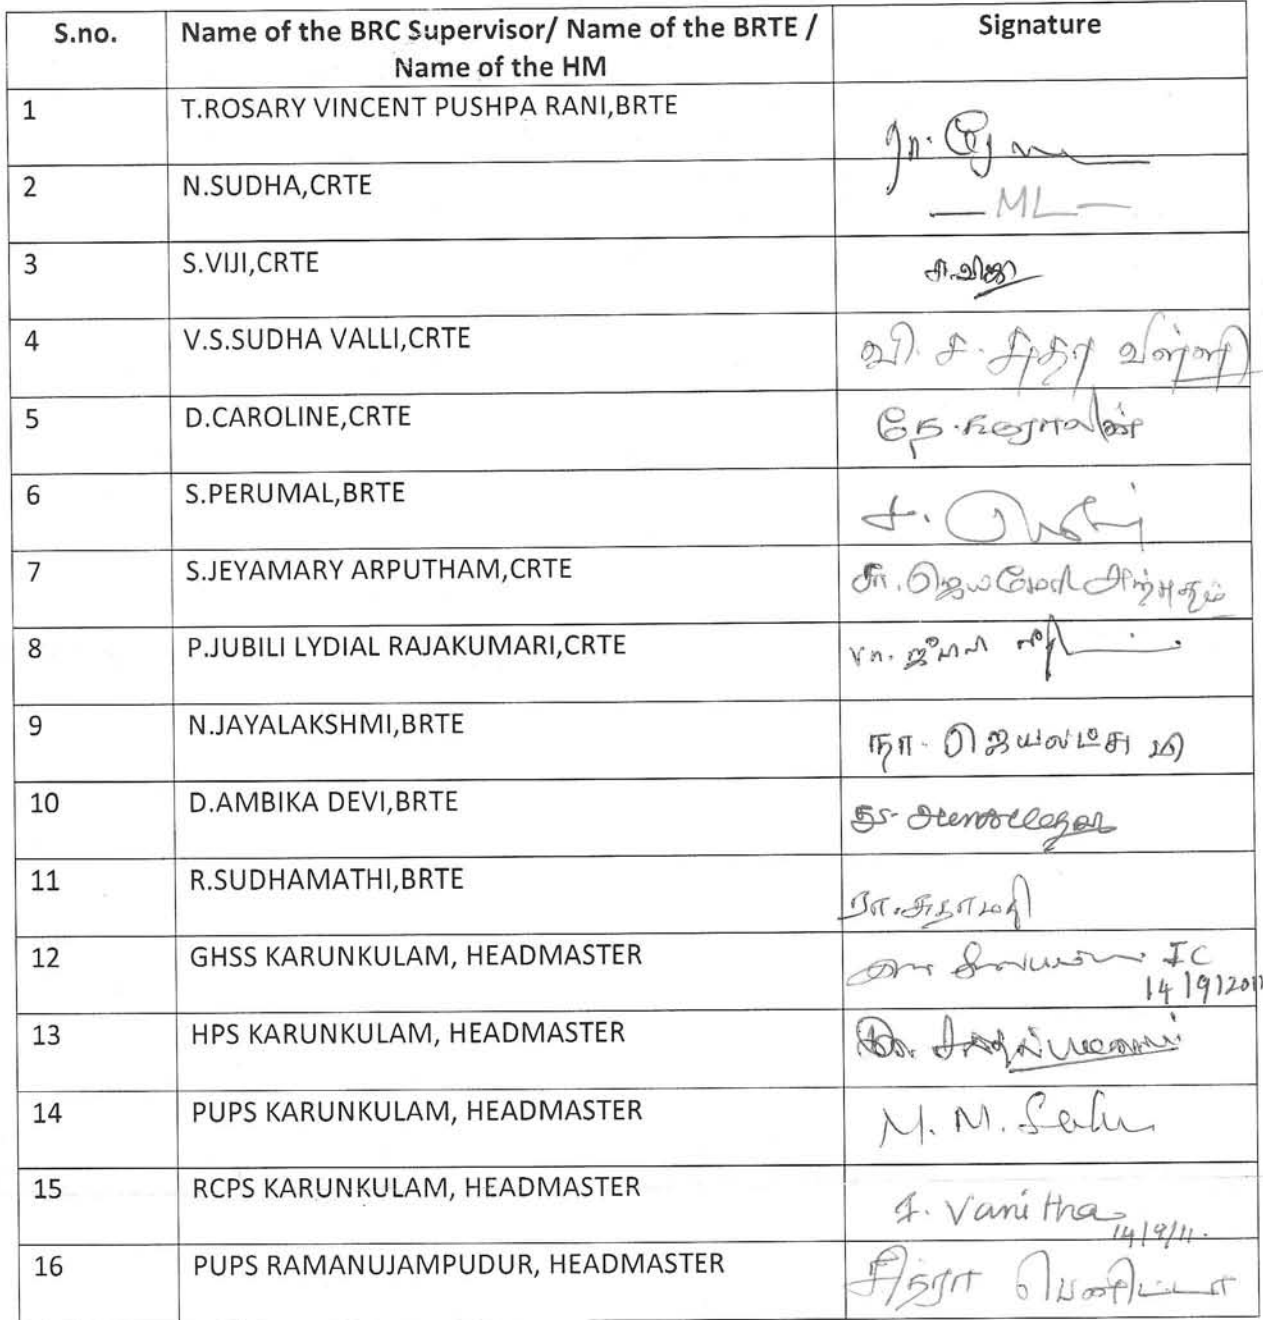 S.no. Name of the BRC Supervisor/ Name of the BRTE / Signature
Name of the HM
1 T.ROSARY VINCENT PUSHPA RANI,BRTE
2 N.SUDHA,CRTE — ML —
3 S.VIJI,CRTE ச.விஜி
4 V.S.SUDHA VALLI,CRTE வி. ச. சுதா வள்ளி
5 D.CAROLINE,CRTE தே.கரோலின்
6 S.PERUMAL,BRTE ச.
7 S.JEYAMARY ARPUTHAM,CRTE சா.ஜெயமேரி அற்புதம்
8 P.JUBILI LYDIAL RAJAKUMARI,CRTE
9 N.JAYALAKSHMI,BRTE நா. ஜெயலட்சுமி
10 D.AMBIKA DEVI,BRTE
11 R.SUDHAMATHI,BRTE ரா.சுதாமதி
12 GHSS KARUNKULAM, HEADMASTER IC
14/9/2011
13 HPS KARUNKULAM, HEADMASTER
14 PUPS KARUNKULAM, HEADMASTER M. M.
15 RCPS KARUNKULAM, HEADMASTER Vanitha
14/9/11.
16 PUPS RAMANUJAMPUDUR, HEADMASTER சித்ரா பெனிட்டா